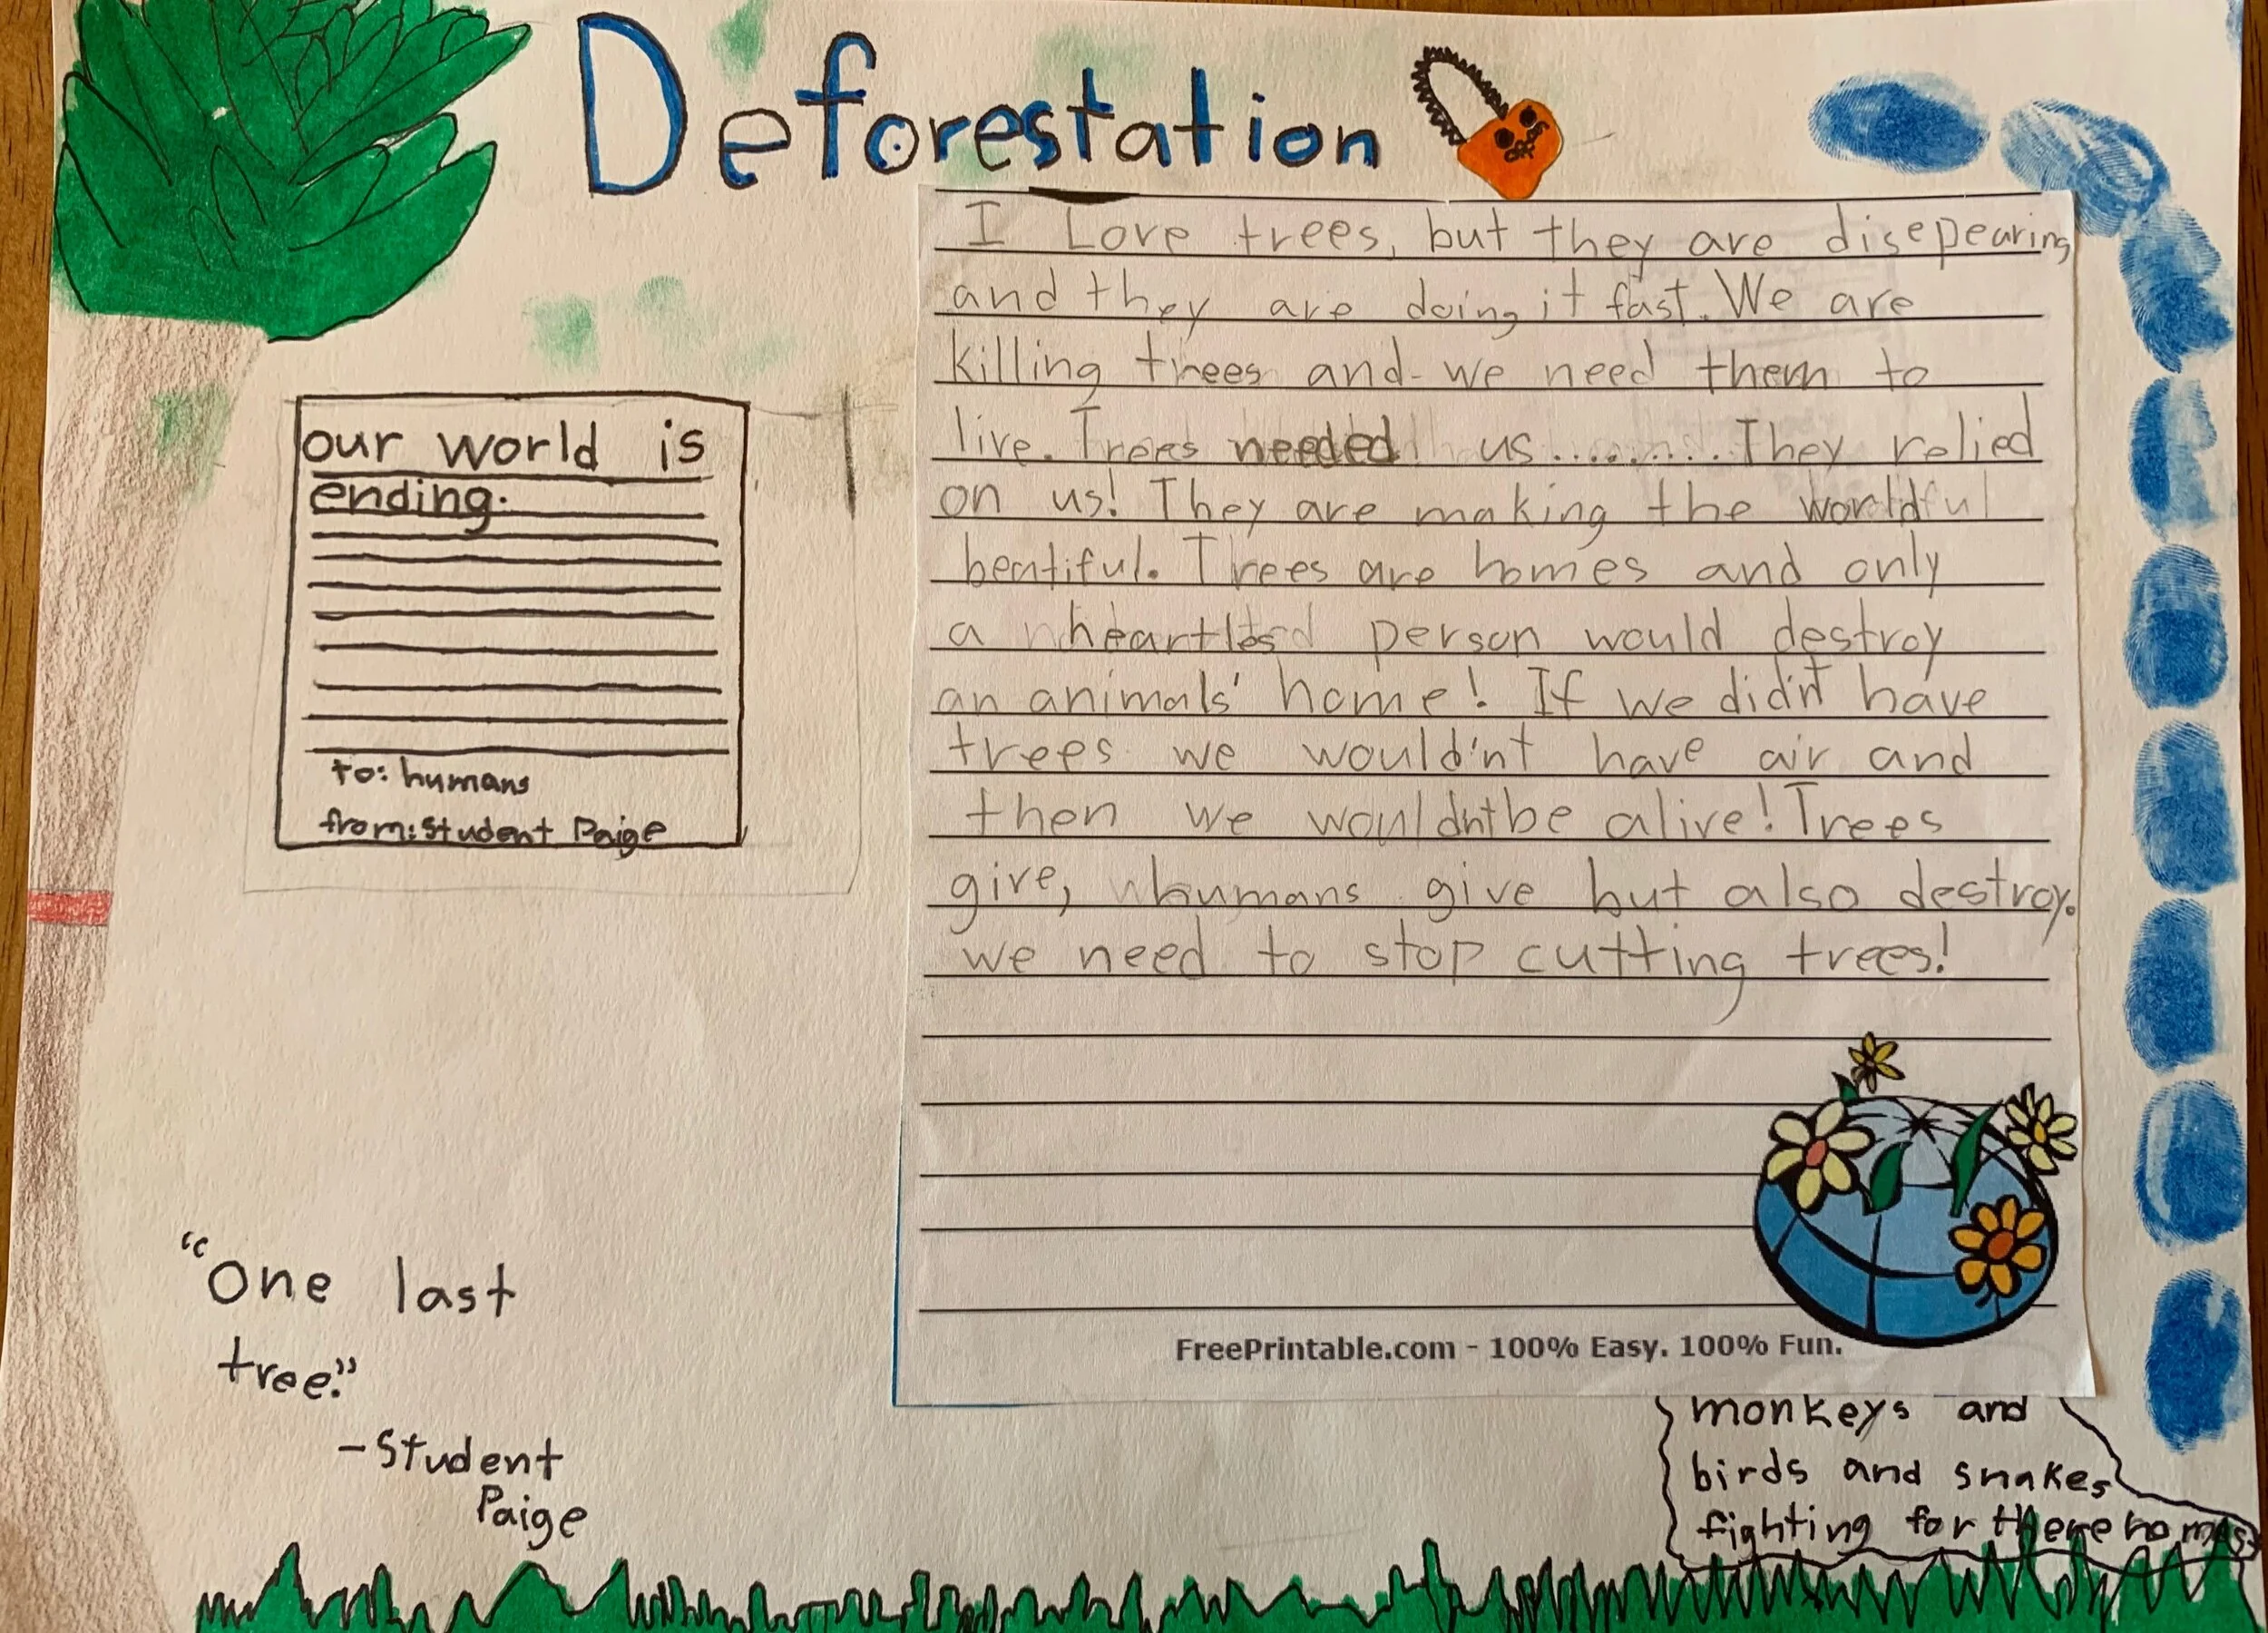 Deforestation
off
I Love trees, but they are disepearing
and they are doing it fast. We are
killing trees and we need them to
live. Trees needed us......... They relied
on us! They are making the world
beatiful. Trees are homes and only
a heartles person would destroy
an animals' home! If we did'nt have
trees we would'nt have air and
then we wouldn't be alive! Trees
give, humans give but also destroy.
we need to stop cutting trees!
FreePrintable.com - 100% Easy. 100% Fun.
our world is
ending.
to: humans
from: Student Paige
"One last
tree."
-Student
Paige
monkeys and
birds and snakes
fighting for there homes